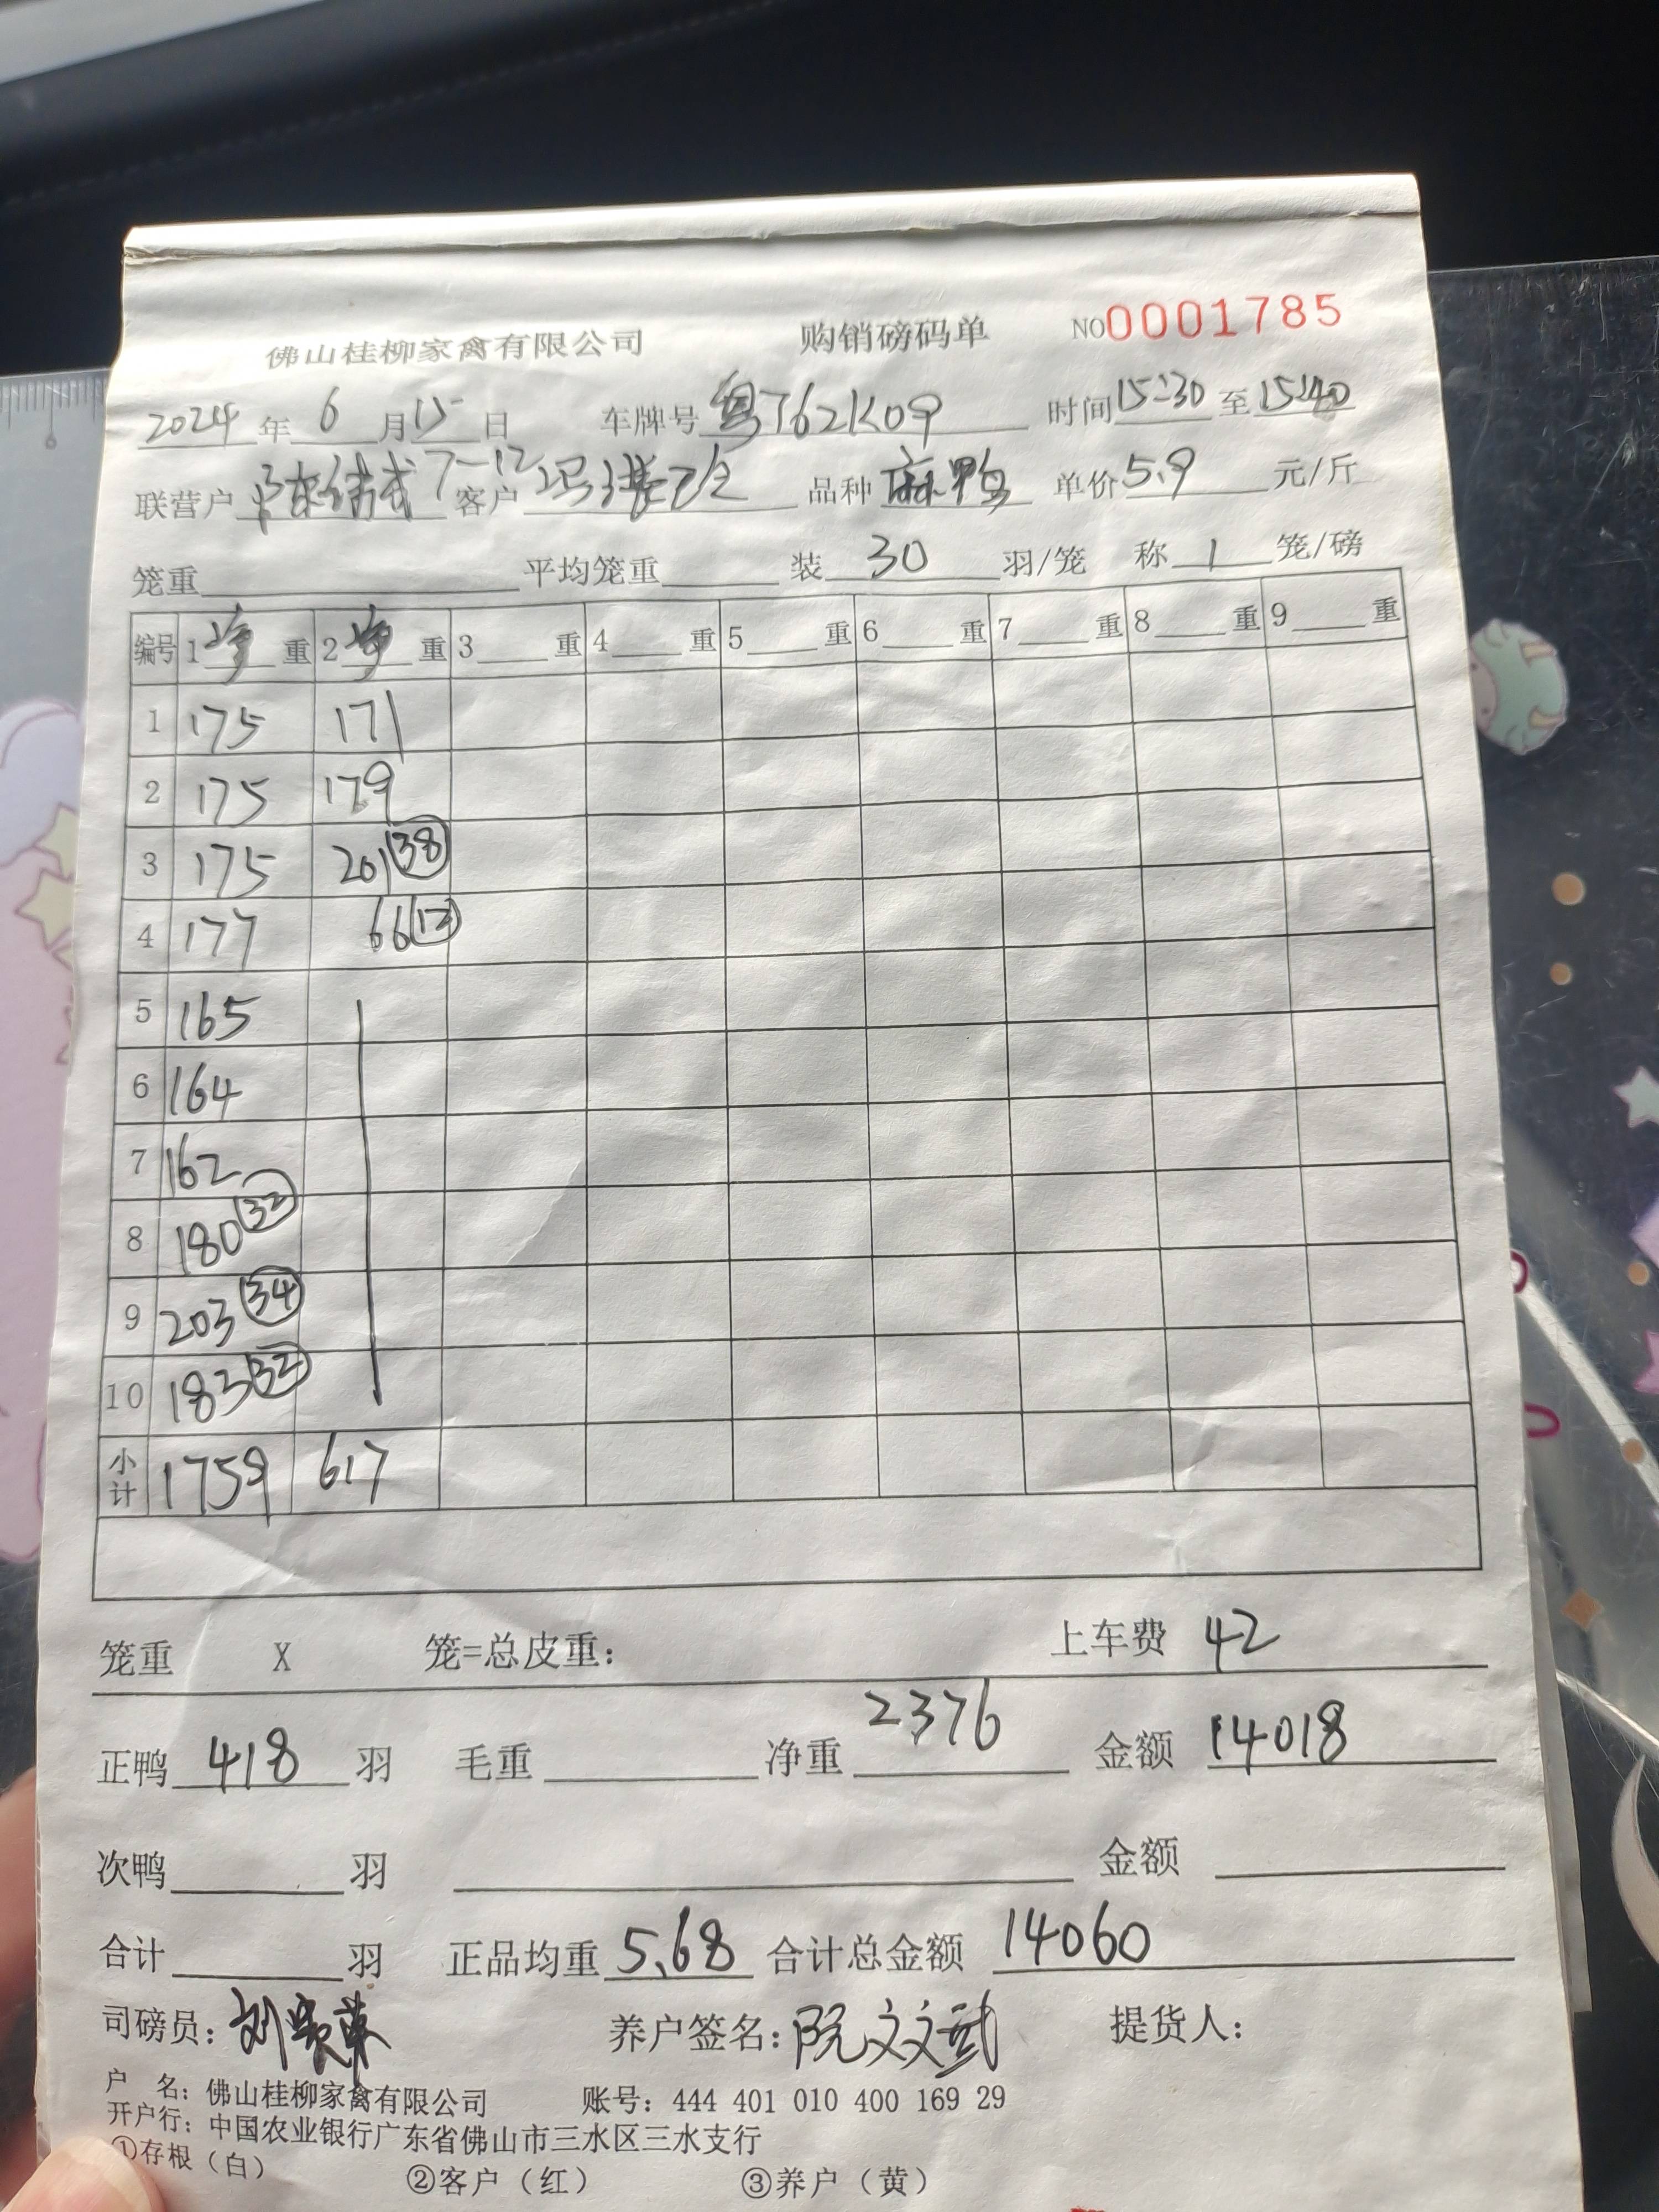 佛山桂柳家禽有限公司 购销磅码单 NO0001785
2024年6月15日 车牌号 粤J62K09 时间15:30至15:40
联营户 7-12 客户 品种 麻鸭 单价5.9元/斤
笼重 平均笼重 装 30 羽/笼 称 1 笼/磅
编号 1 净 重 2 净 重 3 重 4 重 5 重 6 重 7 重 8 重 9 重
1 175 171
2 175 179
3 175 201 38
4 177 66 12
5 165
6 164
7 162
8 180 32
9 203 34
10 183 32
小计 1759 617
笼重 X 笼=总皮重: 上车费 42
正鸭 418 羽 毛重 净重 2376 金额 14018
次鸭 羽 金额
合计 羽 正品均重 5.68 合计总金额 14060
司磅员: 养户签名: 提货人:
户 名: 佛山桂柳家禽有限公司 账号: 444 401 010 400 169 29
开户行: 中国农业银行广东省佛山市三水区三水支行
①存根（白） ②客户（红） ③养户（黄）